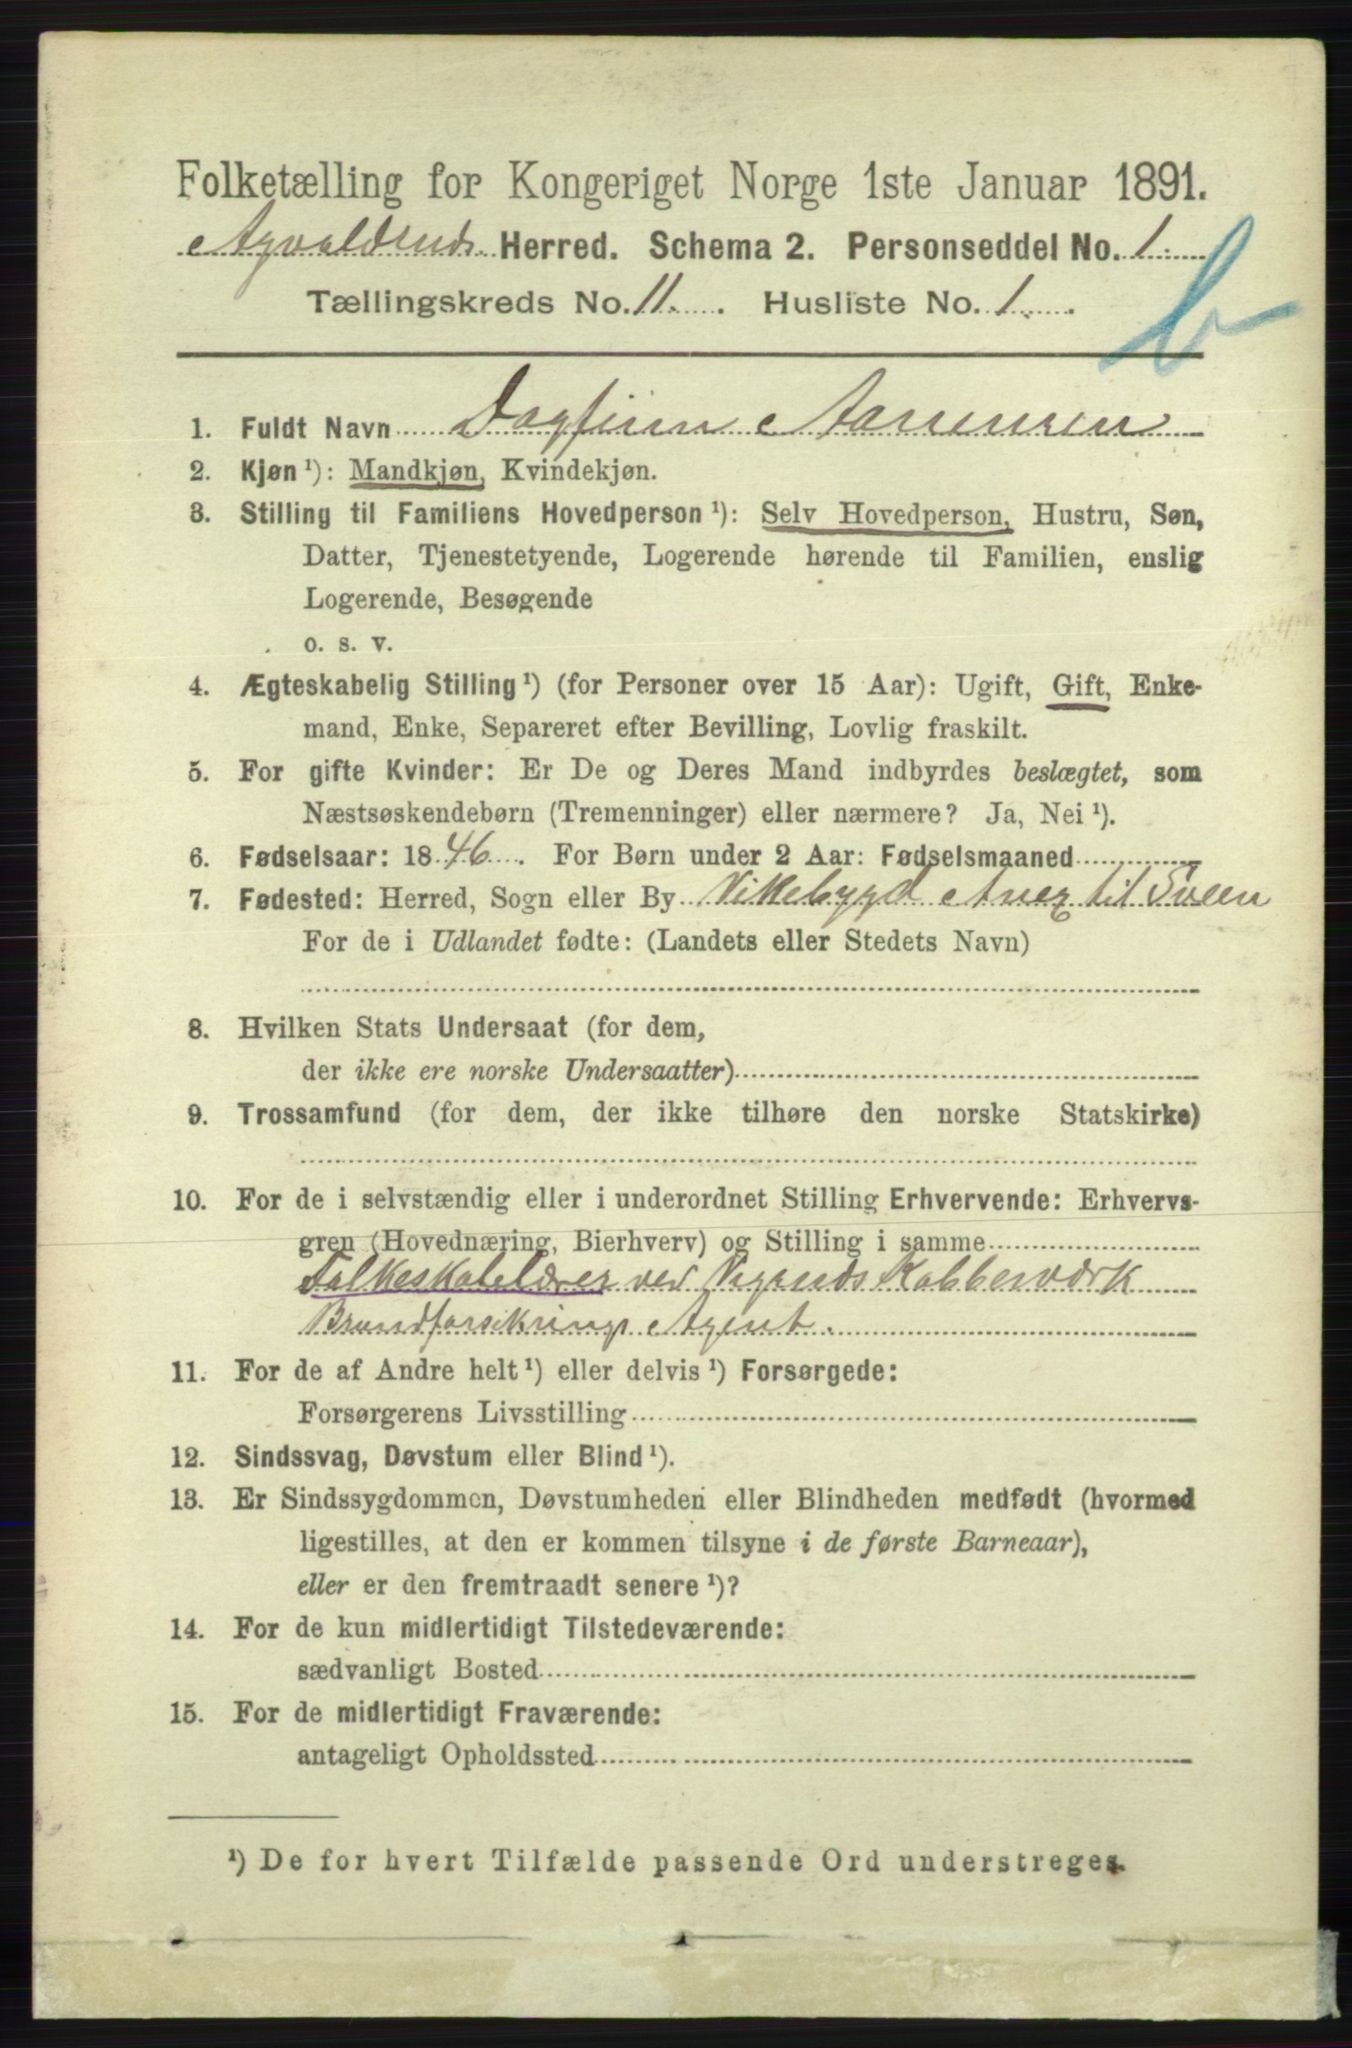 Folketælling for Kongeriget Norge 1ste Januar 1891.
Avaldsnds Herred. Schema 2. Personseddel No. 1.
Tællingskreds No. 11. Husliste No. 1.
b
1. Fuldt Navn Dagfinn Aanensen
2. Kjøn ¹): Mandkjøn, Kvindekjøn.
3. Stilling til Familiens Hovedperson ¹): Selv Hovedperson, Hustru, Søn,
Datter, Tjenestetyende, Logerende hørende til Familien, enslig
Logerende, Besøgende
o. s. v.
4. Ægteskabelig Stilling ¹) (for Personer over 15 Aar): Ugift, Gift, Enke-
mand, Enke, Separeret efter Bevilling, Lovlig fraskilt.
5. For gifte Kvinder: Er De og Deres Mand indbyrdes beslægtet, som
Næstsøskendebørn (Tremenninger) eller nærmere? Ja, Nei ¹).
6. Fødselsaar: 1846. For Børn under 2 Aar: Fødselsmaaned
7. Fødested: Herred, Sogn eller By Vikebygd Anex til Sveen
For de i Udlandet fødte: (Landets eller Stedets Navn)
8. Hvilken Stats Undersaat (for dem,
der ikke ere norske Undersaatter)
9. Trossamfund (for dem, der ikke tilhøre den norske Statskirke)
10. For de i selvstændig eller i underordnet Stilling Erhvervende: Erhvervs-
gren (Hovednæring, Bierhverv) og Stilling i samme
Folkeskolelærer ved Vigsnds Kobberværk
Brandforsikrings Agent.
11. For de af Andre helt ¹) eller delvis ¹) Forsørgede:
Forsørgerens Livsstilling
12. Sindssvag, Døvstum eller Blind ¹).
13. Er Sindssygdommen, Døvstumheden eller Blindheden medfødt (hvormed
ligestilles, at den er kommen tilsyne i de første Barneaar),
eller er den fremtraadt senere ¹)?
14. For de kun midlertidigt Tilstedeværende:
sædvanligt Bosted
15. For de midlertidigt Fraværende:
antageligt Opholdssted
¹) De for hvert Tilfælde passende Ord understreges.